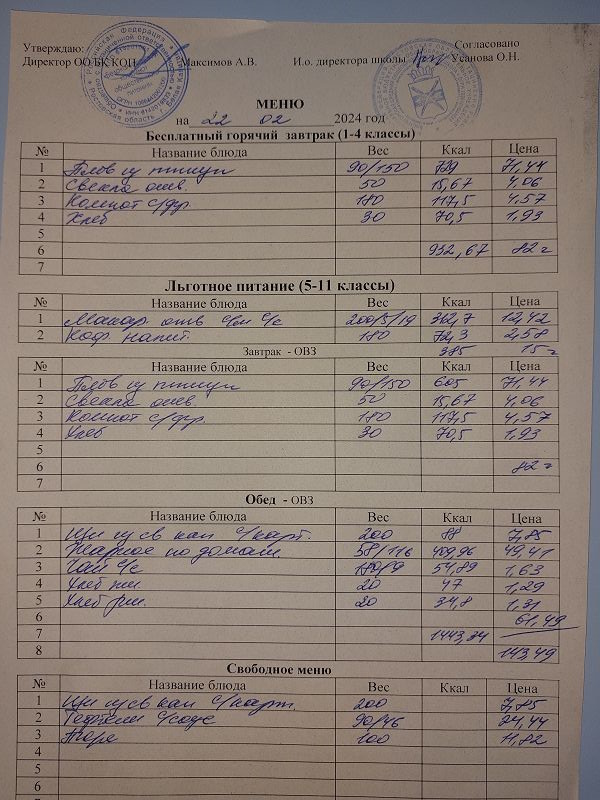 Утверждаю:
Согласовано
Директор ООО БК КОП Максимов А.В. И.о. директора школы Усанова О.Н.
МЕНЮ
на 22 02 2024 год
Бесплатный горячий завтрак (1-4 классы)
№ Название блюда Вес Ккал Цена
1 Плов из птицы 90/150 729 71,44
2 Свекла отв. 50 15,67 4,06
3 Компот с/фр 180 117,5 4,57
4 Хлеб 30 70,5 1,93
5
6 932,67 82=
7
Льготное питание (5-11 классы)
№ Название блюда Вес Ккал Цена
1 Макар. отв с/м с/с 200/5/19 312,7 12,42
2 Коф. напит. 180 72,3 2,58
385 15=
Завтрак - ОВЗ
№ Название блюда Вес Ккал Цена
1 Плов из птицы 90/150 605 71,44
2 Свекла отв. 50 15,67 4,06
3 Компот с/фр. 180 117,5 4,57
4 Хлеб 30 70,5 1,93
5
6 82=
7
Обед - ОВЗ
№ Название блюда Вес Ккал Цена
1 Щи из св кап с/карт. 200 88 7,85
2 Жаркое по домаш. 58/116 409,96 49,41
3 Чай с/с 180/9 54,89 1,63
4 Хлеб пш. 20 47 1,29
5 Хлеб рж. 20 34,8 1,31
6 61,49
7 1443,34
8 143,49
Свободное меню
№ Название блюда Вес Ккал Цена
1 Щи из св кап с/карт. 200 7,85
2 Тефтели с/соус 90/46 24,44
3 Пюре 100 11,82
4
5
6